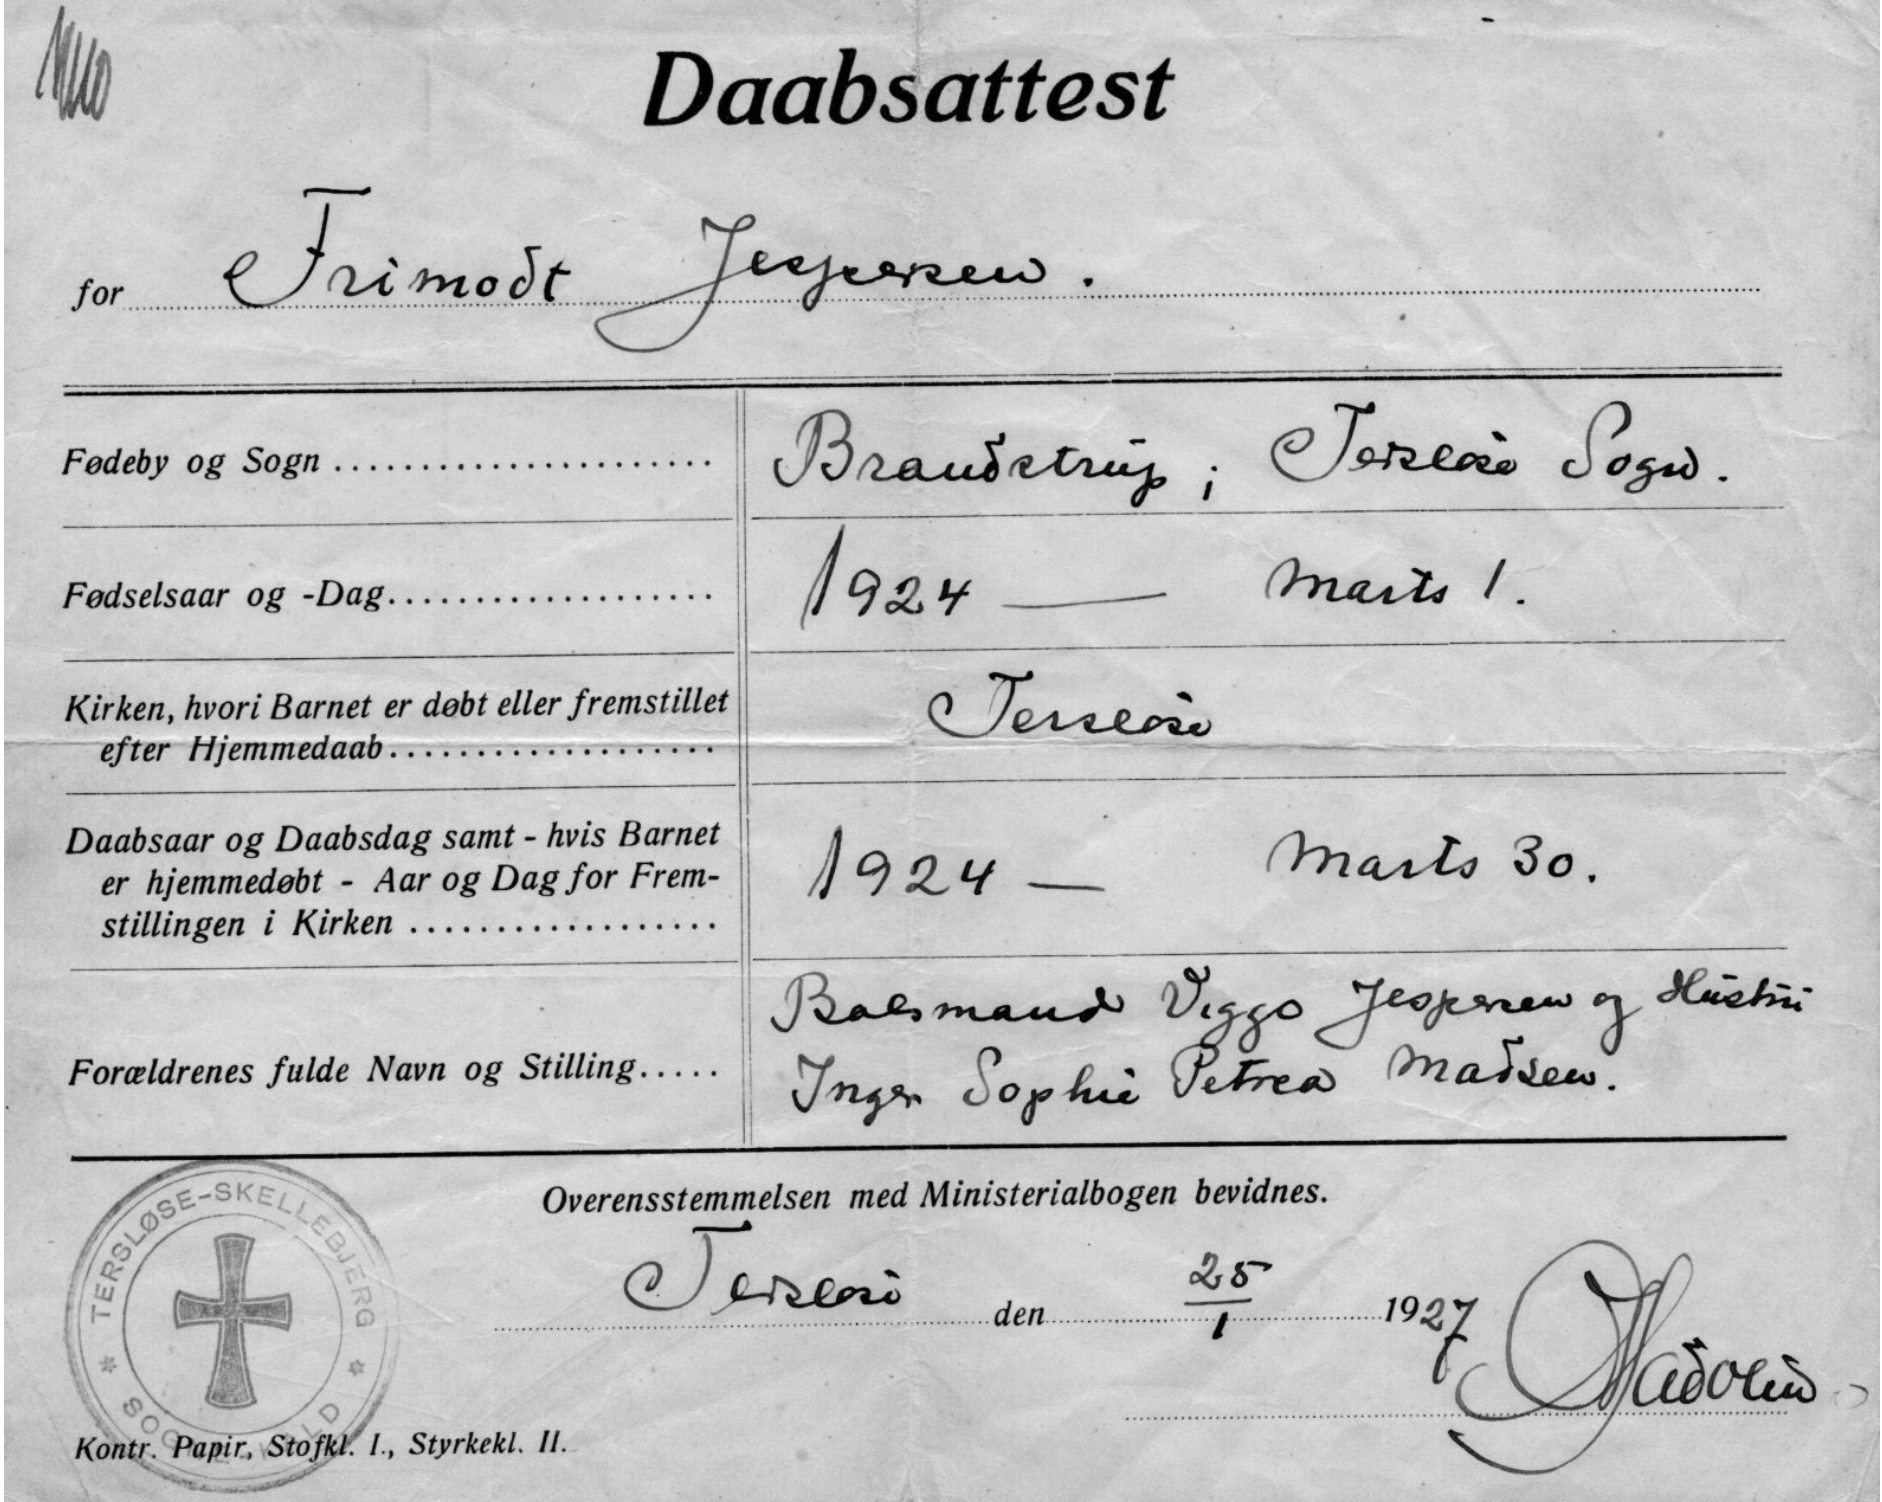 Daabsattest
for Frimodt Jespersen.
Fødeby og Sogn ...................... Brandstrup, Tersløse Sogn.
Fødselsaar og -Dag.................... 1924 — Marts 1.
Kirken, hvori Barnet er døbt eller fremstillet
efter Hjemmedaab.................... Tersløse
Daabsaar og Daabsdag samt - hvis Barnet
er hjemmedøbt - Aar og Dag for Frem-
stillingen i Kirken ................... 1924 — Marts 30.
Forældrenes fulde Navn og Stilling.....
Bolsmand Viggo Jespersen og Hustru
Inger Sophie Petrea Madsen.
Overensstemmelsen med Ministerialbogen bevidnes.
Tersløse den 25/1 1927
TERSLØSE-SKELLEBJERG
Kontr. Papir, Stofkl. I., Styrkekl. II.